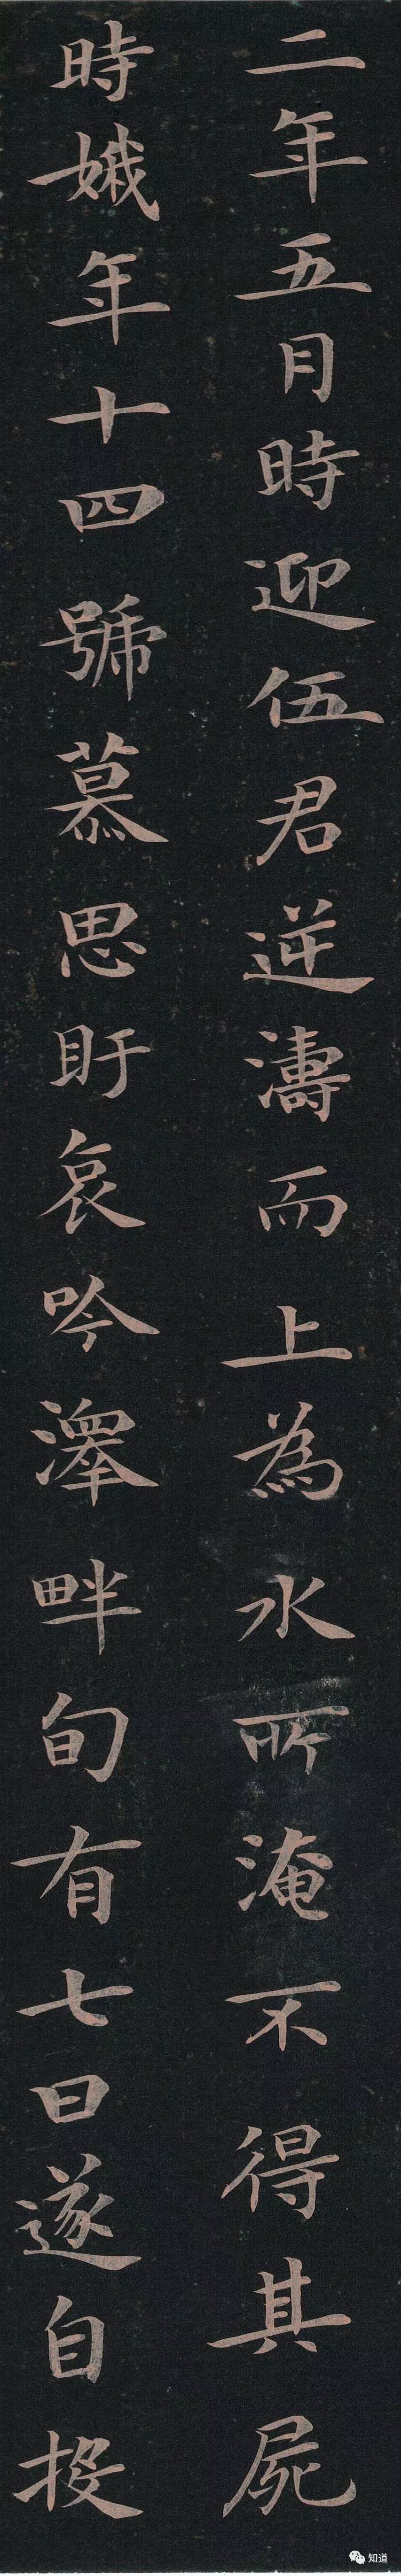 二年五月時迎伍君逆濤而上為水所淹不得其屍
時娥年十四號慕思盱哀吟澤畔旬有七日遂自投
知道